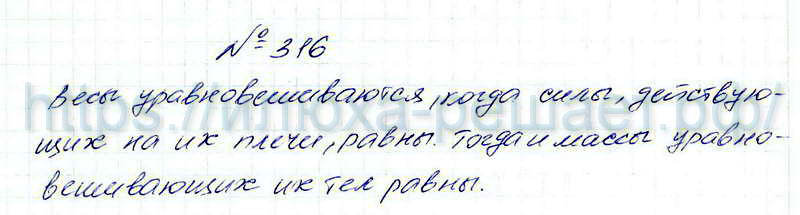 № 316
Весы уравновешиваются, когда силы, действую-
щих на их плечи, равны. Тогда и массы уравно-
вешивающих их тел равны.
https://илюха-решает.рф/